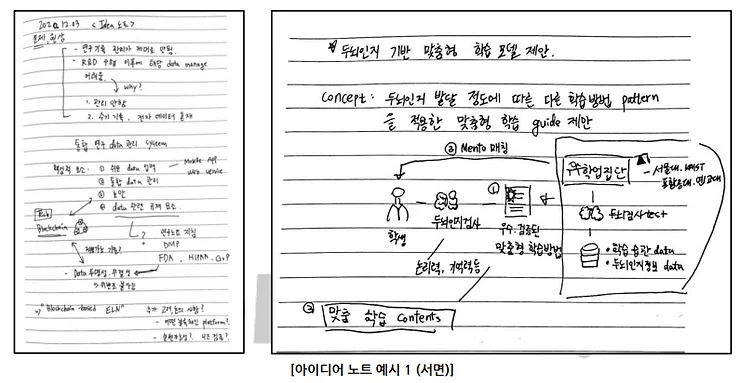 2020.12.03 <Idea 노트>
문제 현상
- 연구기록 관리가 제대로 안됨.
- R&D 수행 이후에 해당 data manage
어려움.
why?
1. 관리 안함
2. 수기 기록, 전자 데이터 혼재
통합 연구 data 관리 System
핵심적 요소: ① 쉬운 data 입력
Mobile App
Web service
② 통합 data 관리
③ 보안
④ data 관련 규제 요소.
ELN
Blockchain
연구노트 지침
DMP
FDA, HIPAA, GxP
- Data 투명성, 무결성
→ 위변조 불가능
"Blockchain-based ELN"
추가 고려 사항?
- 어떤 블록체인 platform?
☆ 두뇌인지 기반 맞춤형 학습 모델 제안.
Concept: 두뇌인지 발달 정도에 따른 다른 학습방법 pattern
을 적용한 맞춤형 학습 guide 제안
③ Mento 매칭
학생
두뇌인지검사
①
우수·검증된
맞춤형 학습방법
논리력, 기억력 등
② 맞춤 학습 contents
우수학업집단
서울대, KAIST
포항공대, 연고대
두뇌검사 test
• 학습 습관 data
• 두뇌인지정보 data
[아이디어 노트 예시 1 (서면)]